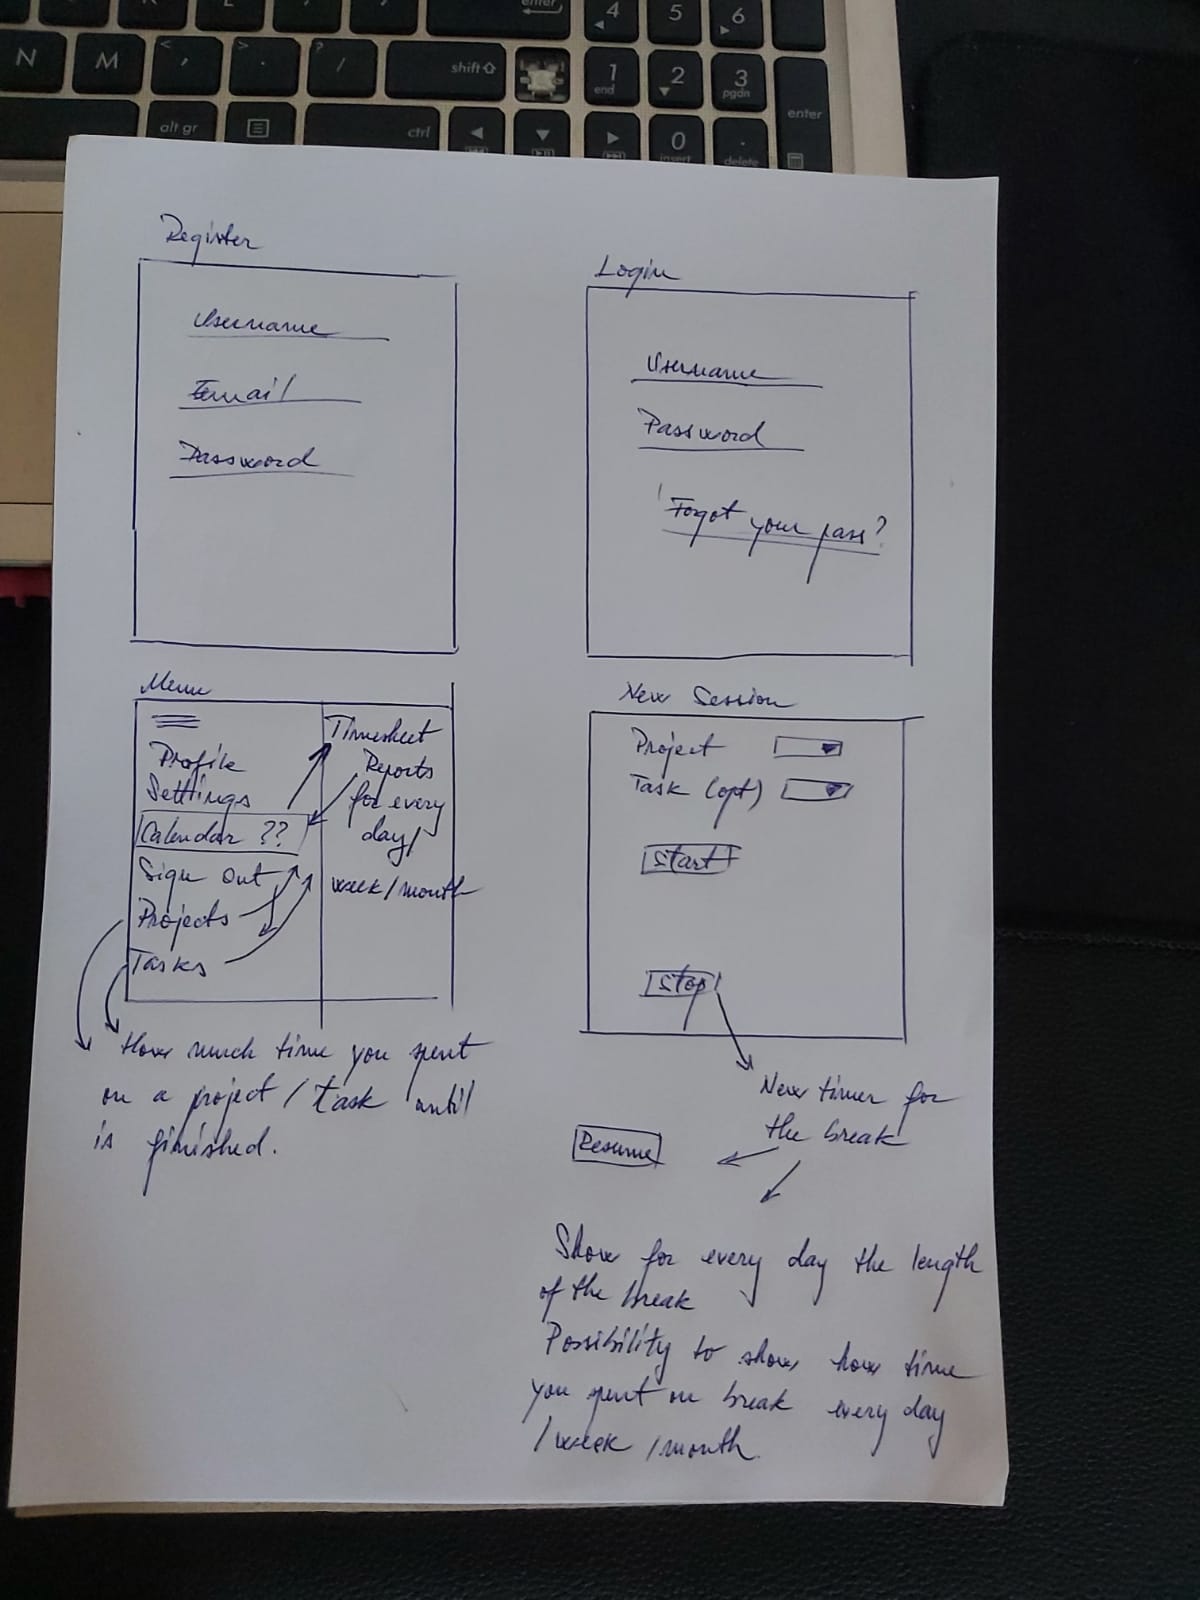 enter
4
5
6
N
M
<
,
>
.
?
/
shift
1
end
2
3
pgdn
enter
alt gr
ctrl
0
insert
.
delete
Register
Username
Email
Password
Login
Username
Password
Forgot your pass?
Menu
Profile
Settings
Calendar ??
Sign out
Projects
Tasks
Timesheet
Reports
for every
day/
week/month
How much time you spent
on a project / task until
is finished.
New Session
Project
Task (opt)
Start
Stop
New timer for
the break
Resume
Show for every day the length
of the break
Possibility to show how time
you spent on break every day
/week /month.